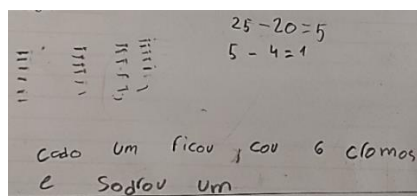 25 - 20 = 5
5 - 4 = 1
cado um ficou, cou 6 cromos
e sodrou um